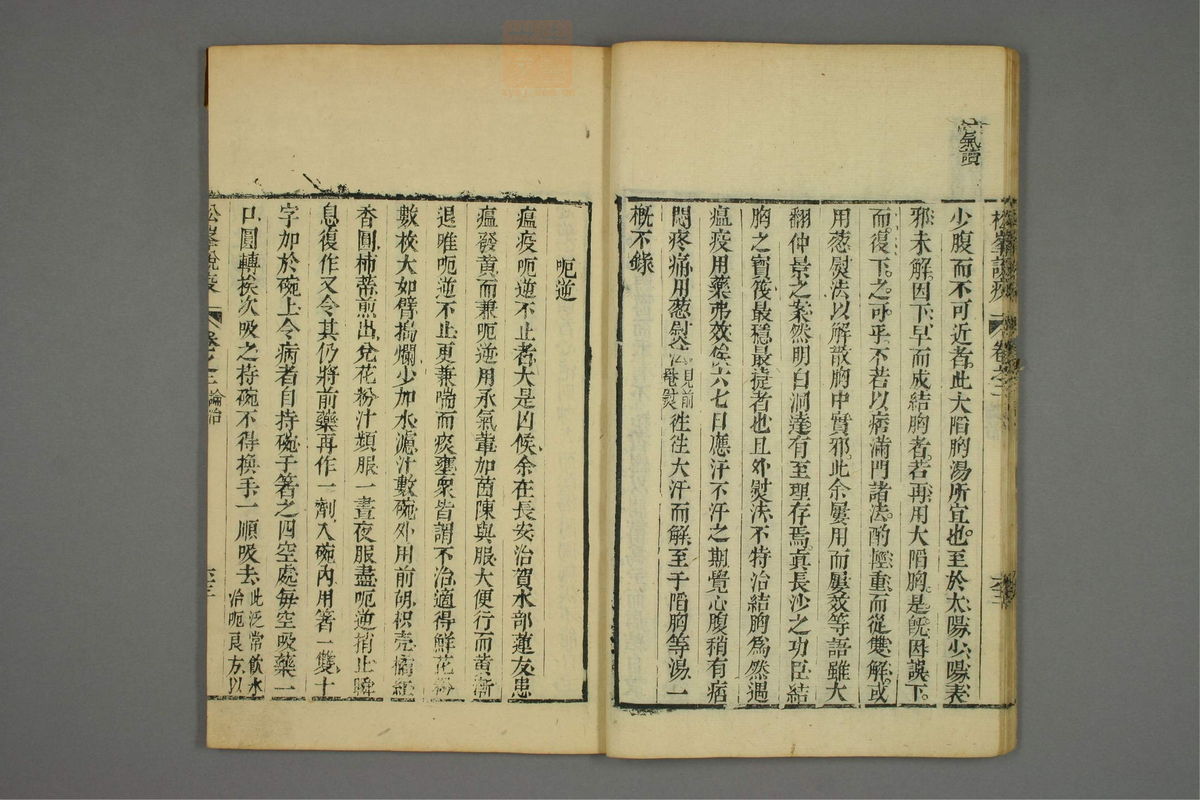 少腹而不可近者此大陷胸湯所宜也至於太陽少陽表
邪未解因下早而成結胸者若再用大陷胸是旣因誤下
而復下之可乎不若以痞滿門諸法酌輕重而從雙解或
用葱熨法以解散胸中實邪此余屢用而屢效等語雖大
翻仲景之案然明白洞達有至理存焉眞長沙之功臣結
胸之寶筏最穩最捷者也且外熨法不特治結胸爲然遇
瘟疫用藥弗效俟六七日應汗不汗之期覺心腹稍有痞
悶疼痛用葱熨法見前卷熨往往大汗而解至于陷胸等湯一
槪不錄
松峯說疫
卷之二
呃逆
瘟疫呃逆不止者大是凶候余在長安治賀水部蓮友患
瘟發黃而兼呃逆用承氣輩加茵陳與服大便行而黃漸
退唯呃逆不止更兼喘而痰壅衆皆謂不治適得鮮花粉
數枚大如臂搗爛少加水濾汁數碗外用前胡枳壳橘紅
香圓柿蒂煎出兌花粉汁頻服一晝夜服盡呃逆稍止瞬
息復作又令其仍將前藥再作一劑入碗內用箸一雙十
字加於碗上令病者自持碗于箸之四空處每空吸藥一
口圓轉挨次吸之持碗不得換手一順吸去此泛常飮水治呃良方以
松峯說疫
卷之二
論治